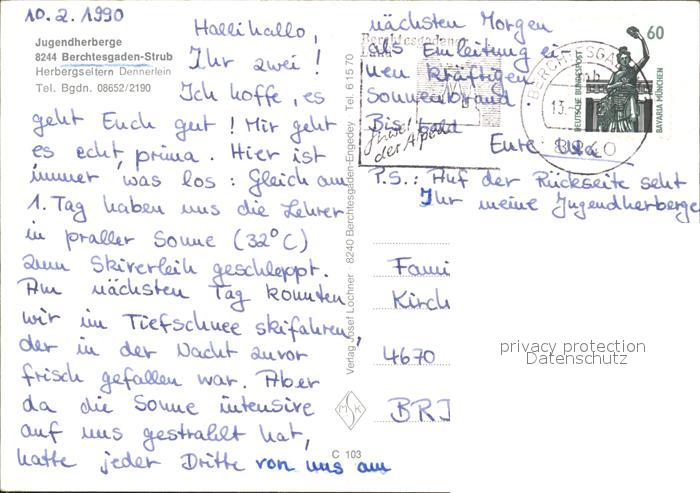 10.2.1990
Jugendherberge
8244 Berchtesgaden-Strub
Herbergseltern Dennerlein
Tel. Bgdn. 08652/2190
Hallihallo,
Ihr zwei!
Ich hoffe, es
geht Euch gut! Mir geht
es echt prima. Hier ist
immer was los: Gleich am
1. Tag haben uns die Lehrer
in praller Sonne (32°C)
zum Skiverleih geschleppt.
Am nächsten Tag konnten
wir im Tiefschnee skifahren,
der in der Nacht zuvor
frisch gefallen war. Aber
da die Sonne intensive
auf uns gestrahlt hat,
hatte jeder Dritte von uns am
nächsten Morgen
als Einleitung ei-
nen kräftigen
Sonnenbrand
Bis bald
Eure
P.S.: Auf der Rückseite seht
Ihr meine Jugendherberge
Verlag Josef Lochner 8240 Berchtesgaden-Engedey Tel. 6 15 70
Berchtesgadener
Land
der Alpen
BERCHTESGA
13.
8240
60
DEUTSCHE BUNDESPOST
BAVARIA MÜNCHEN
Fami
Kirch
4670
BR
C 103
privacy protection
Datenschutz